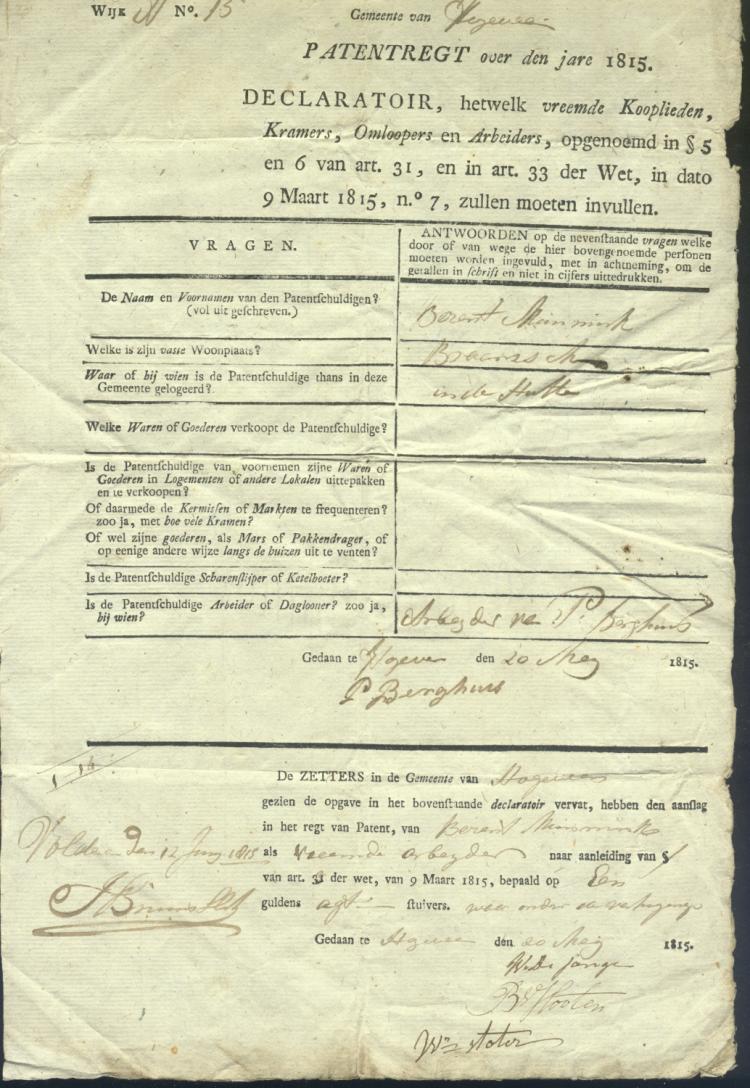 WIJK N No. 15 Gemeente van
PATENTREGT over den jare 1815.
DECLARATOIR, hetwelk vreemde Kooplieden,
Kramers, Omloopers en Arbeiders, opgenoemd in § 5
en 6 van art. 31, en in art. 33 der Wet, in dato
9 Maart 1815, n.o 7, zullen moeten invullen.
VRAGEN.
ANTWOORDEN op de nevenstaande vragen welke
door of van wege de hier bovengenoemde personen
moeten worden ingevuld, met in achtneming, om de
getallen in schrift en niet in cijfers uittedrukken.
De Naam en Voornamen van den Patentschuldigen?
(vol uit geschreven.)
Berent Minnink
Welke is zijn vaste Woonplaats?
Waar of bij wien is de Patentschuldige thans in deze
Gemeente gelogeerd?
in de Hutte
Welke Waren of Goederen verkoopt de Patentschuldige?
Is de Patentschuldige van voornemen zijne Waren of
Goederen in Logementen of andere Lokalen uittepakken
en te verkoopen?
Of daarmede de Kermissen of Markten te frequenteren?
zoo ja, met hoe vele Kramen?
Of wel zijne goederen, als Mars of Pakkendrager, of
op eenige andere wijze langs de huizen uit te venten?
Is de Patentschuldige Scharenslijper of Ketelboeter?
Is de Patentschuldige Arbeider of Daglooner? zoo ja,
bij wien?
Arbeyder van P. Berghuis
Gedaan te Hogeveen den 20 Mey 1815.
P Berghuis
De ZETTERS in de Gemeente van Hogeveen
gezien de opgave in het bovenstaande declaratoir vervat, hebben den aanslag
in het regt van Patent, van Berent Minnink
als vreemde arbeyder naar aanleiding van §
van art. 31 der wet, van 9 Maart 1815, bepaald op Een
guldens agt stuivers. waar onder de verhoginge
Voldaan den 12 Juny 1815
Gedaan te Hogeveen den 20 Mey 1815.
W de Jonge
B Slooten
Wm Stoter